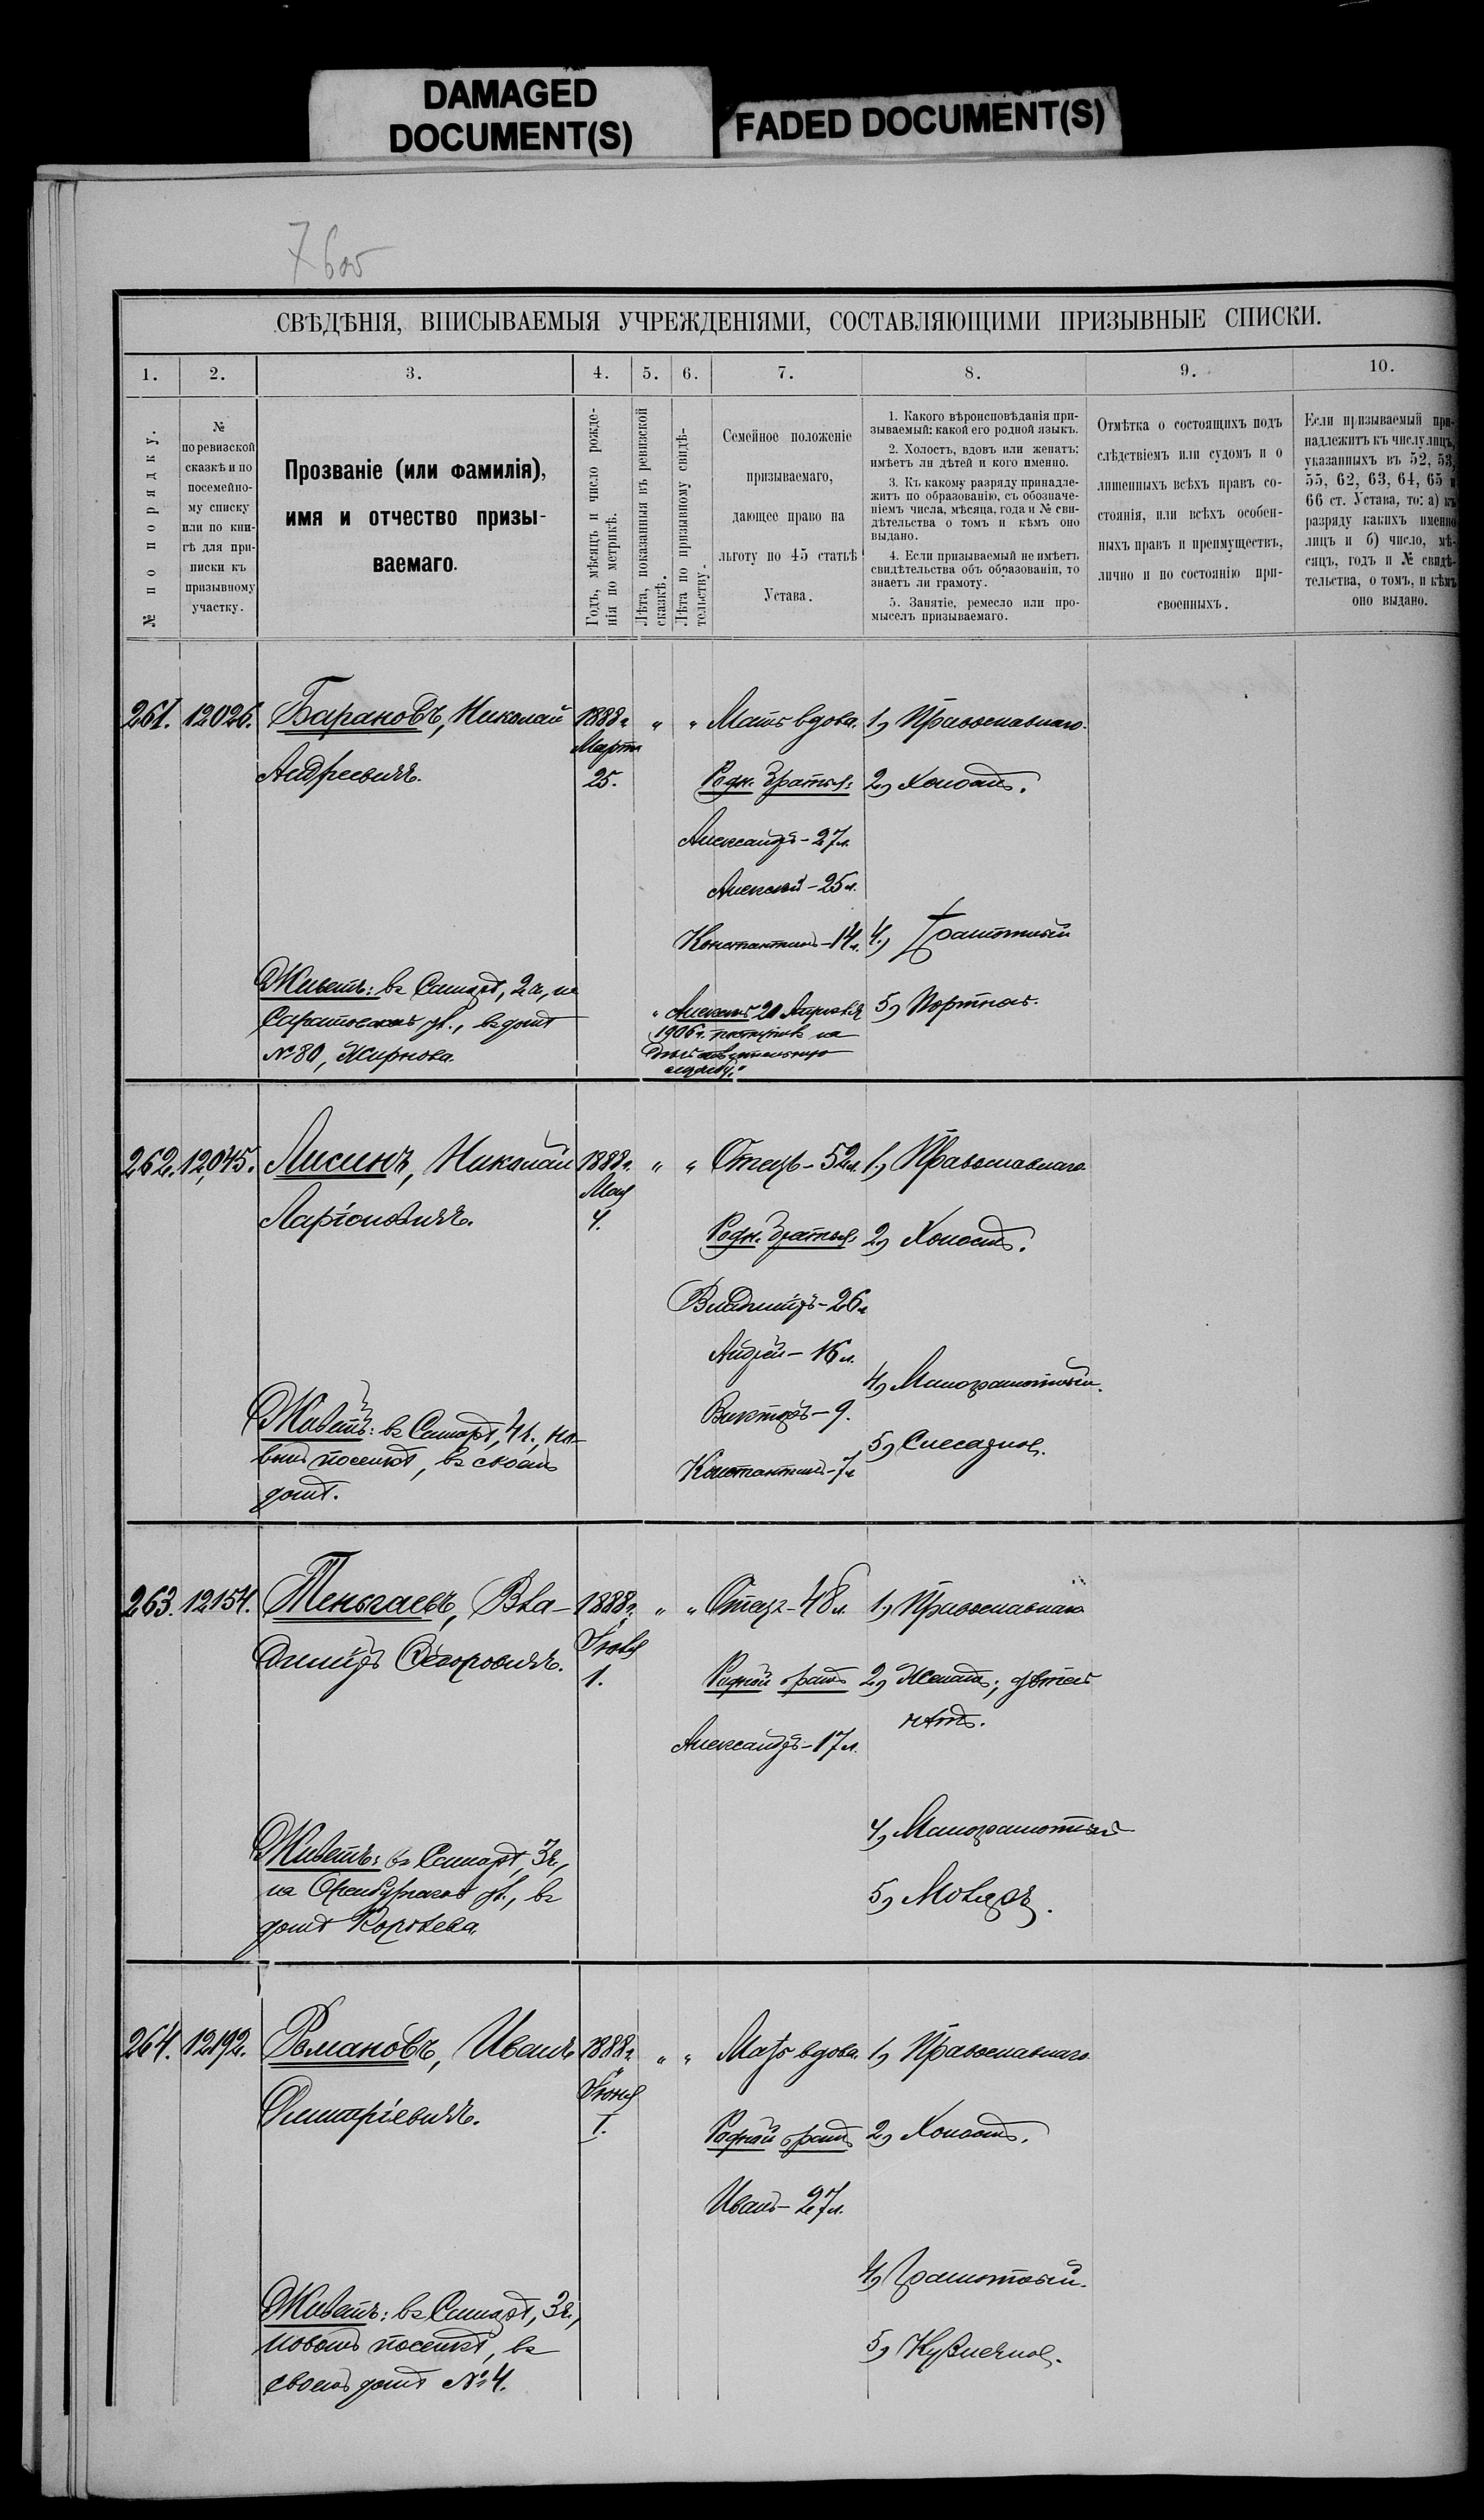 DAMAGED
DOCUMENT(S)
FADED DOCUMENT(S)
СВѢДѢНІЯ, ВПИСЫВАЕМЫЯ УЧРЕЖДЕНІЯМИ, СОСТАВЛЯЮЩИМИ ПРИЗЫВНЫЕ СПИСКИ.
1. 2. 3. 4. 5. 6. 7. 8. 9. 10.
№ по порядку.
№
по ревизской
сказкѣ и по
посемейно-
му списку
или по кни-
гѣ для при-
писки къ
призывному
участку.
Прозваніе (или фамилія),
имя и отчество призы-
ваемаго.
Годъ, мѣсяцъ и число рожде-
нія по метрикѣ.
Лѣта, показанныя въ ревизской
сказкѣ.
Лѣта по призывному свидѣ-
тельству.
Семейное положеніе
призываемаго,
дающее право на
льготу по 45 статьѣ
Устава.
1. Какого вѣроисповѣданія при-
зываемый: какой его родной языкъ.
2. Холостъ, вдовъ или женатъ:
имѣетъ ли дѣтей и кого именно.
3. Къ какому разряду принадле-
житъ по образованію, съ обозначе-
ніемъ числа, мѣсяца, года и № сви-
дѣтельства о томъ и кѣмъ оно
выдано.
4. Если призываемый не имѣетъ
свидѣтельства объ образованіи, то
знаетъ ли грамоту.
5. Занятіе, ремесло или про-
мыселъ призываемаго.
Отмѣтка о состоящихъ подъ
слѣдствіемъ или судомъ и о
лишенныхъ всѣхъ правъ со-
стоянія, или всѣхъ особен-
ныхъ правъ и преимуществъ,
лично и по состоянію при-
своенныхъ.
Если призываемый при-
надлежитъ къ числу лицъ,
указанныхъ въ 52, 53,
55, 62, 63, 64, 65 и
66 ст. Устава, то: а) къ
разряду какихъ именно
лицъ и б) число, мѣ-
сяцъ, годъ и № свидѣ-
тельства, о томъ, и кѣмъ
оно выдано.
261. 12026. Барановъ, Николай 1888г. " " Мать вдова. 1) Православнаго.
Марта
Андреевичъ. 25. Родн. братья: 2) Холостъ.
Александръ - 27 л.
Алексѣй - 25 л.
Константинъ - 14 л. 4) Грамотный
Живетъ: въ Самарѣ, 2ч., на
Саратовской ул., въ домѣ
№ 80, Жирнова.
"Алексѣй 20
1906 г. поступилъ на
дѣйствительную
службу."
5) Портной.
262. 12,045. Лисинъ, Николай 1888г. " " Отецъ - 52 л. 1) Православнаго
Мая
Ларіоновичъ. 4. Родн. братья 2) Холостъ.
Владиміръ - 26 л
Андрей - 16 л.
4) Малограмотный.
Викторъ - 9.
5) Слесарное.
Константинъ - 7 л
Живетъ: въ Самарѣ, 4ч., но-
вомъ поселкѣ, въ своемъ
домѣ.
263. 12154. Теньгаевъ, Вла- 1888г. " " Отецъ - 48 л. 1) Православнаго
Іюля
диміръ Ѳедоровичъ. 1. Родной братъ 2) Женатъ; дѣтей
нѣтъ.
Александръ - 17 л.
4) Малограмотный
Живетъ: въ Самарѣ, 3ч.,
на Оренбургской ул., въ
домѣ Королева.
5) Моляръ.
264. 12192. Романовъ, Иванъ 1888г. " " Мать вдова. 1) Православнаго
Іюня
1. Родной братъ 2) Холостъ.
Иванъ - 27 л.
4) Грамотный.
Живетъ: въ Самарѣ, 3ч.,
Новомъ поселкѣ, въ
своемъ домѣ № 4.
5) Кузнечное.